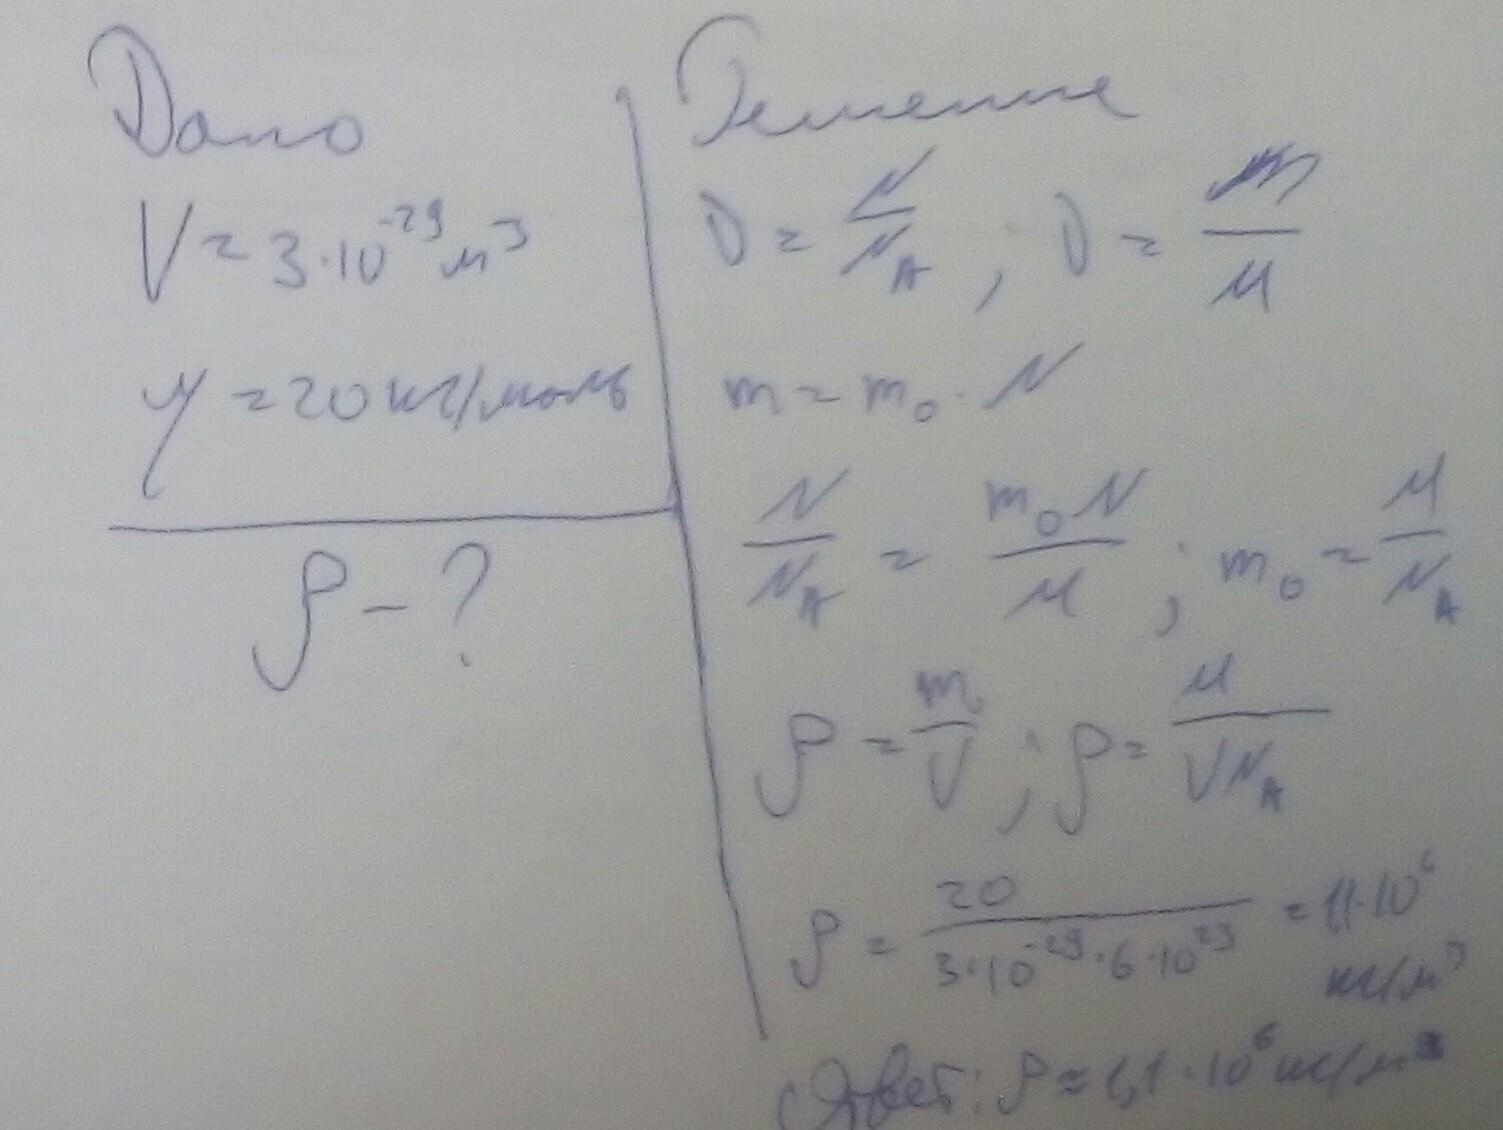 Дано
V = 3·10⁻²⁹ м³
μ = 20 кг/моль
ρ - ?
Решение
ν = N/N_A ; ν = m/M
m = m₀·N
N/N_A = m₀N/M ; m₀ = M/N_A
ρ = m/V ; ρ = M/VN_A
ρ = 20/3·10⁻²⁹·6·10²³ = 1,1·10⁶
кг/м³
Ответ: ρ = 1,1·10⁶ кг/м³